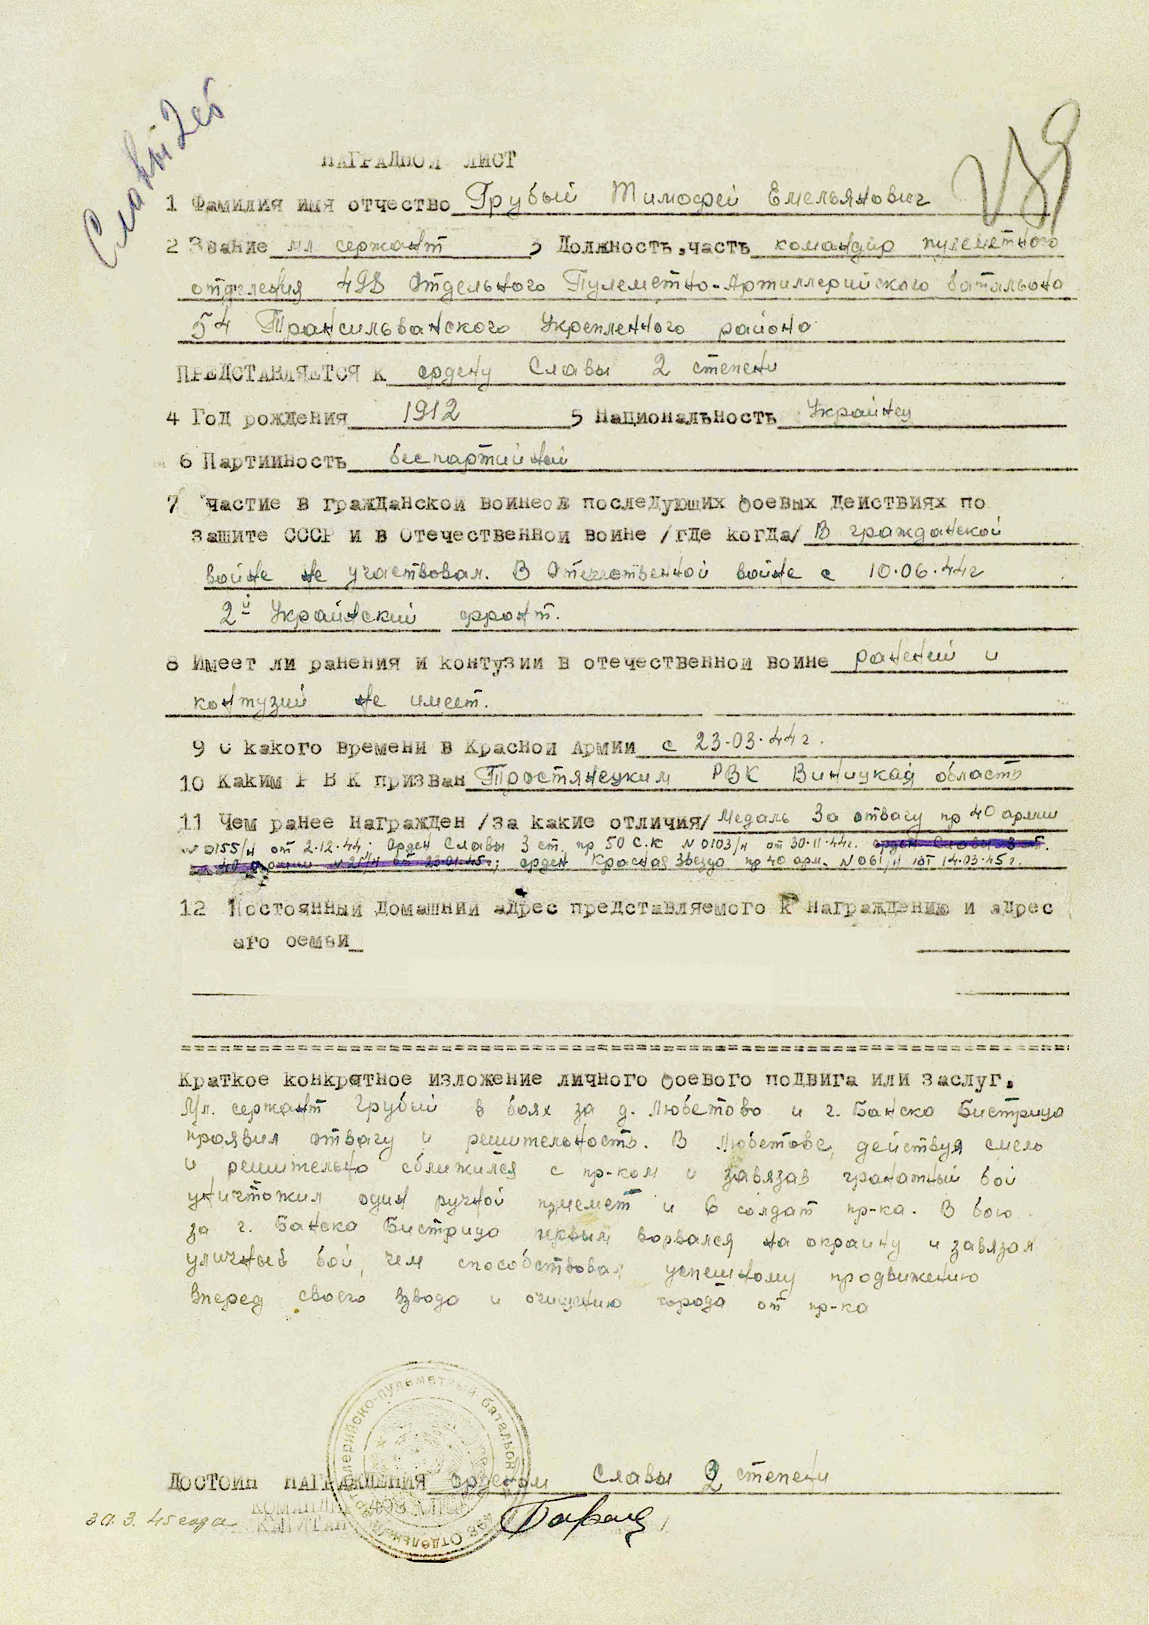 Славы 2 ст
НАГРАДНОЙ ЛИСТ
1 Фамилия имя отчество Грубый Тимофей Емельянович
2 Звание мл. сержант 3 Должность, часть командир пулеметного
отделения 498 Отдельного Пулеметно-Артиллерийского батальона
54 Трансильванского Укрепленного района
ПРЕДСТАВЛЯЕТСЯ К ордену Славы 2 степени
4 Год рождения 1912 5 Национальность Украинец
6 Партийность беспартийный
7 Участие в гражданской войне и в последующих боевых действиях по
защите СССР и в Отечественной войне /где когда/ В гражданской
войне не участвовал. В Отечественной войне с 10.06.44г
2й Украинский фронт.
8 Имеет ли ранения и контузии в отечественной войне ранений и
контузий не имеет.
9 С какого времени в Красной Армии с 23.03.44г.
10 Каким Р В К призван Тростянецким РВК Виницкая область
11 Чем ранее награжден /за какие отличия/ Медаль За отвагу пр 40 армии
N 0155/н от 2.12.44. Орден Славы 3 ст. пр 50 С.К N 0103/н от 30.11.44г. орден Славы 3 ст.
40 армии N 25/н от 23.01.45г; орден Красная Звезда пр 40 арм. N 061/н от 14.03.45г.
12 Постоянный домашний адрес представляемого к награждению и адрес
его семьи
Краткое конкретное изложение личного боевого подвига или заслуг.
Мл. сержант Грубый в боях за д. Любетово и г. Банска Бистрица
проявил отвагу и решительность. В Любетове, действуя смело
и решительно сближился с пр-ком и завязав гранатный бой
уничтожил один ручной пулемет и 6 солдат пр-ка. В бою
за г. Банска Бистрица первым ворвался на окраину и завязал
уличный бой, чем способствовал успешному продвижению
вперед своего взвода и очищению города от пр-ка
ДОСТОИН НАГРАЖДЕНИЯ орденом Славы 2 степени
КОМАНДИР 498
30.3.45 года КАПИТАН